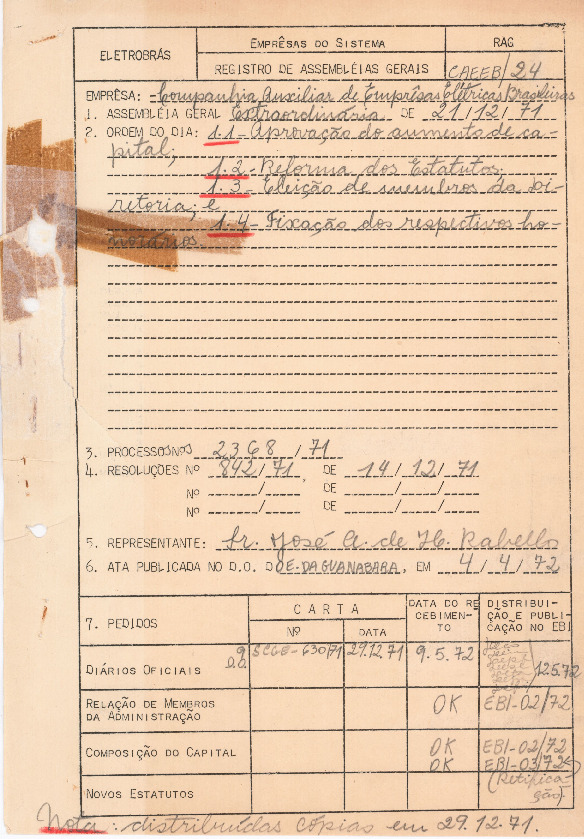 ELETROBRÁS
EMPRÊSAS DO SISTEMA
RAG
REGISTRO DE ASSEMBLÉIAS GERAIS
CAEEB/24
EMPRÊSA: Companhia Auxiliar de Emprêsas Elétricas Brasileiras
1. ASSEMBLÉIA GERAL Extraordinária DE 21/12/71
2. ORDEM DO DIA: 1.1 - Aprovação do aumento de ca-
pital;
1.2 - Reforma dos Estatutos;
1.3 - Eleição de membros da Di-
retoria; e
1.4 - Fixação dos respectivos ho-
norários.
3. PROCESSOS NºS 2368/71
4. RESOLUÇÕES Nº 842/71, DE 14/12/71
Nº / DE / /
Nº / DE / /
5. REPRESENTANTE: Sr. José A. de H. Rabello
6. ATA PUBLICADA NO D.O. DO E. DA GUANABARA, EM 4/4/72
7. PEDIDOS
CARTA
Nº
DATA
DATA DO RECEBIMENTO
DISTRIBUIÇÃO E PUBLICAÇÃO NO EBI
DIÁRIOS OFICIAIS 9 D.O. SCGE-630/71 29.12.71 9.5.72 12.5.72
RELAÇÃO DE MEMBROS DA ADMINISTRAÇÃO OK EBI-02/72
COMPOSIÇÃO DO CAPITAL OK EBI-02/72
OK EBI-03/72
(Retificação)
NOVOS ESTATUTOS
Nota: distribuídas cópias em 29.12.71.